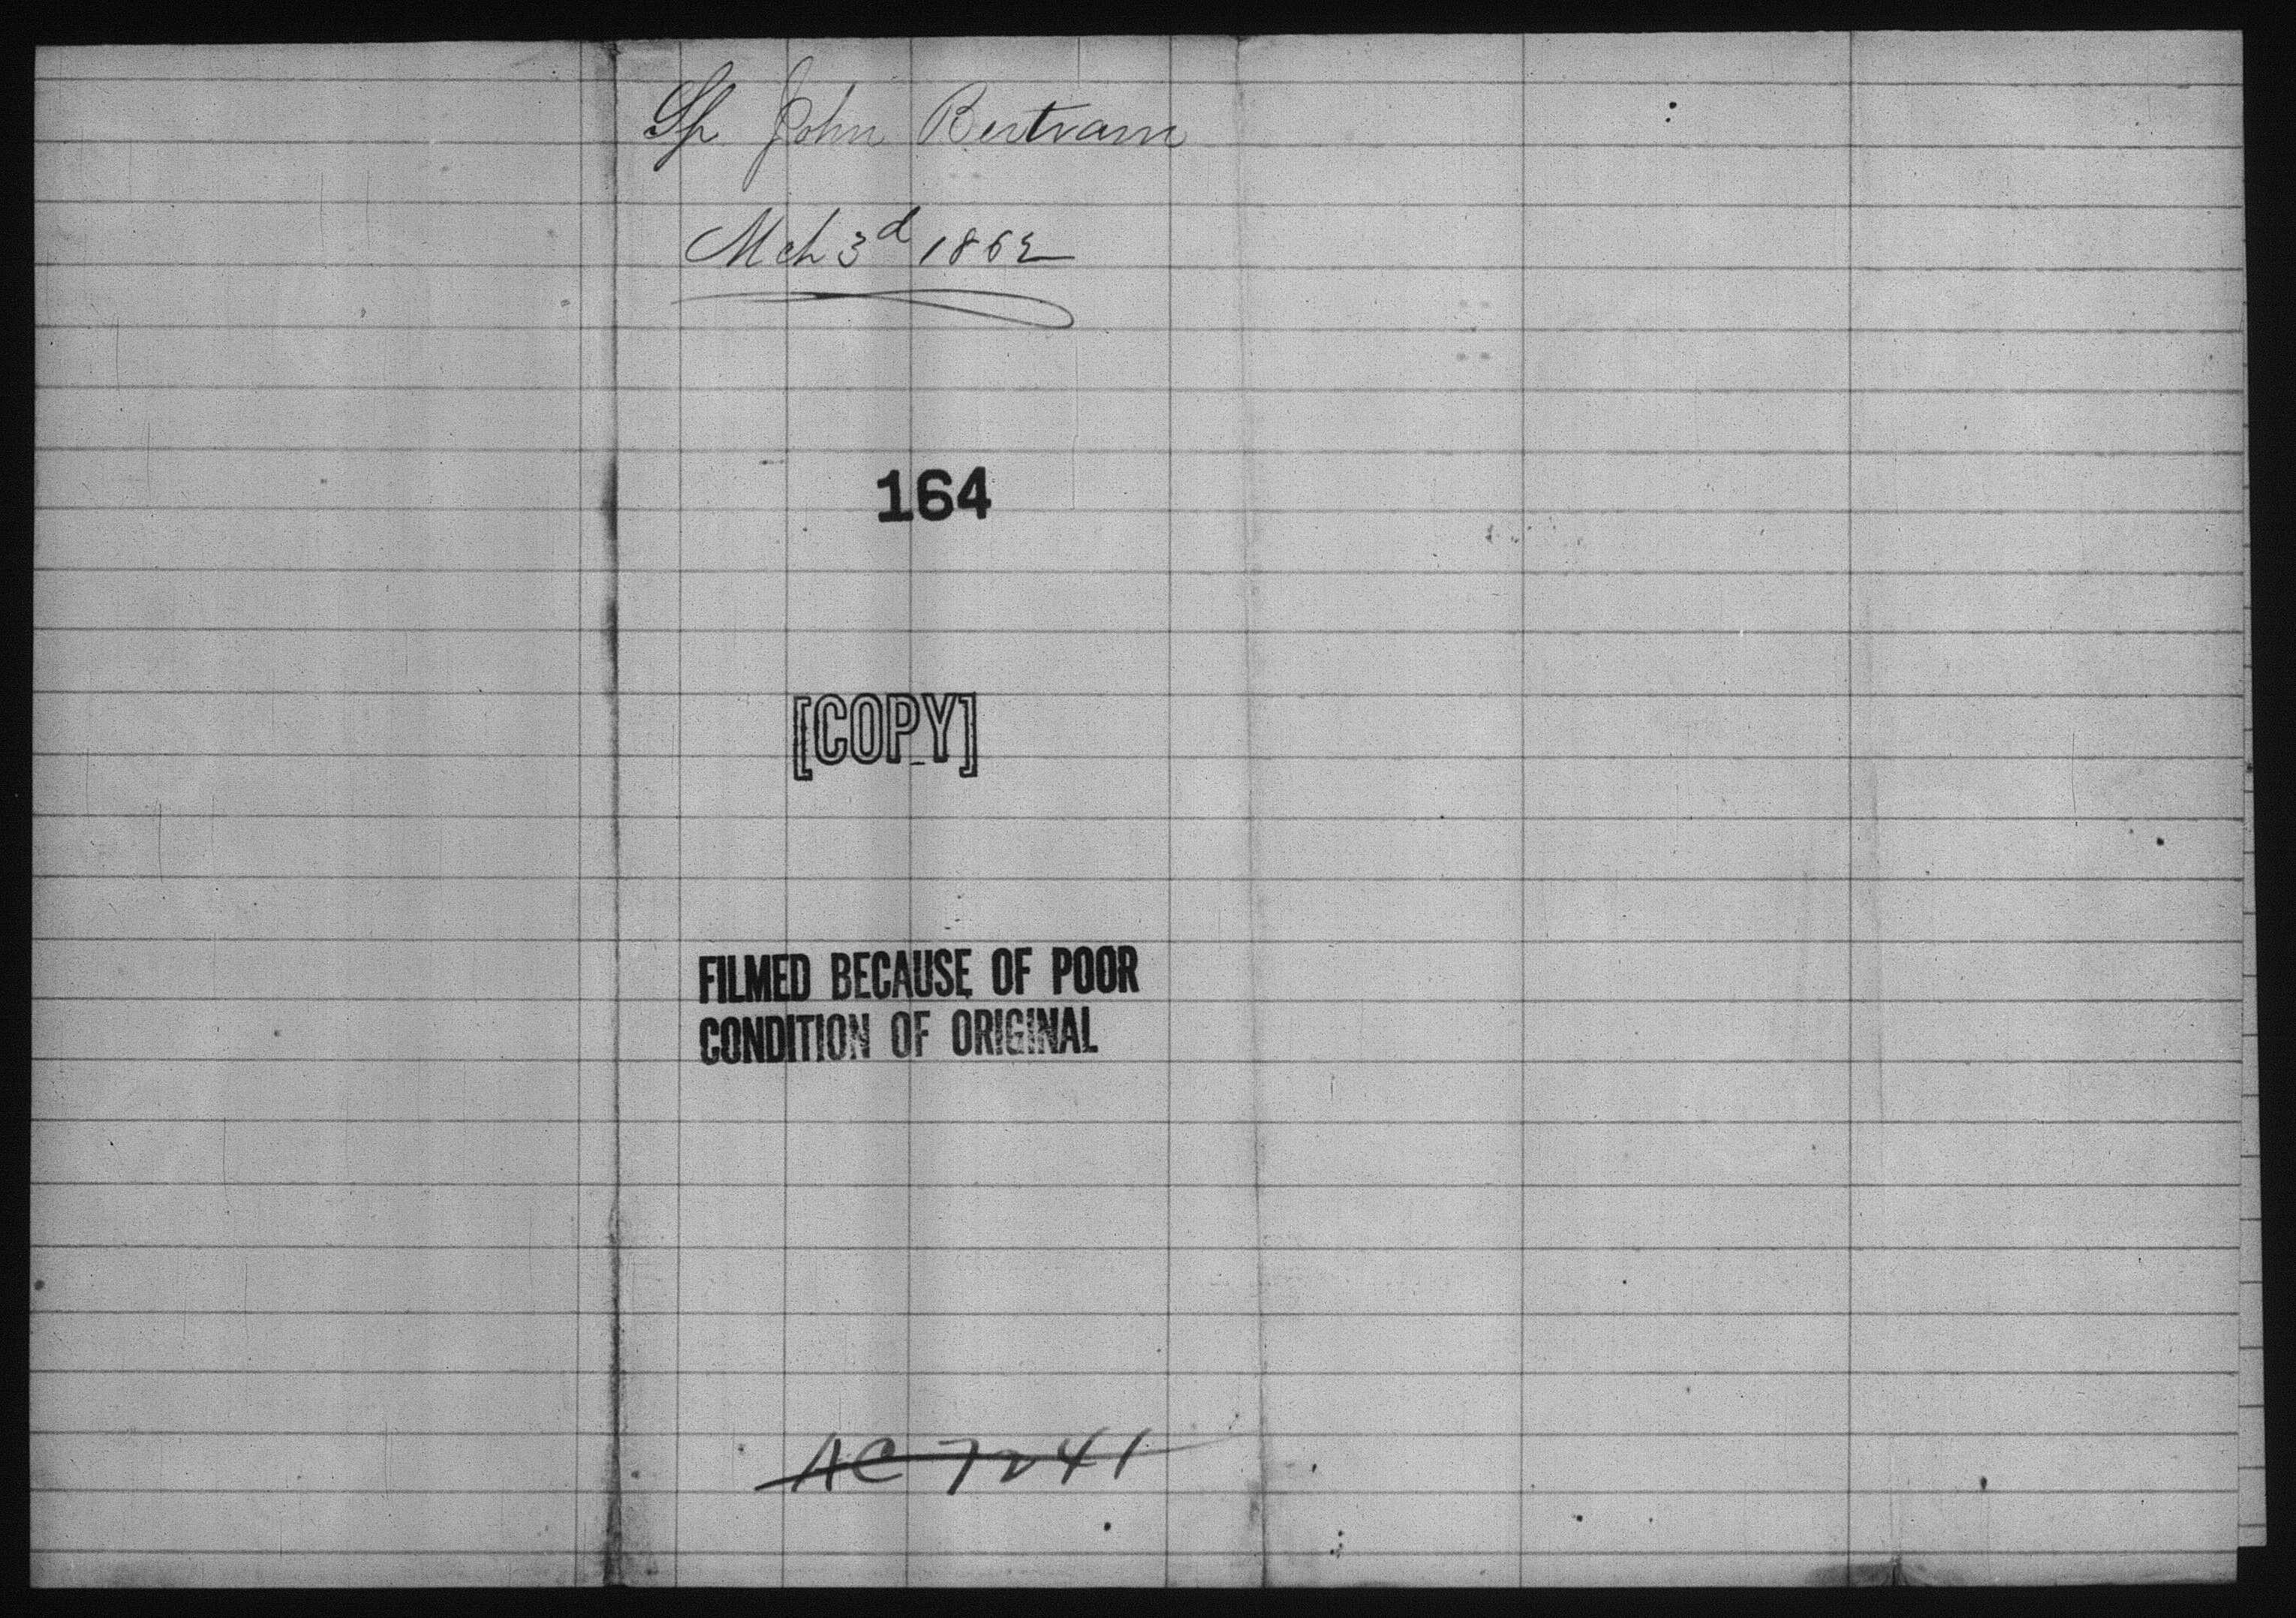 Sh John Bertram
Mch 3d 1862
164
[COPY]
FILMED BECAUSE OF POOR
CONDITION OF ORIGINAL
AC 7241